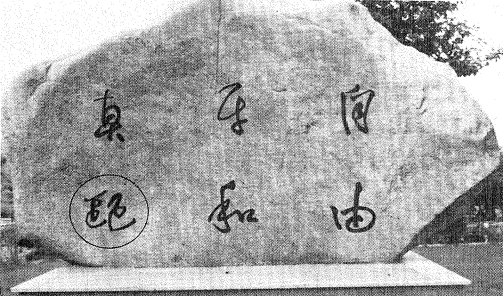 自由
平和
真